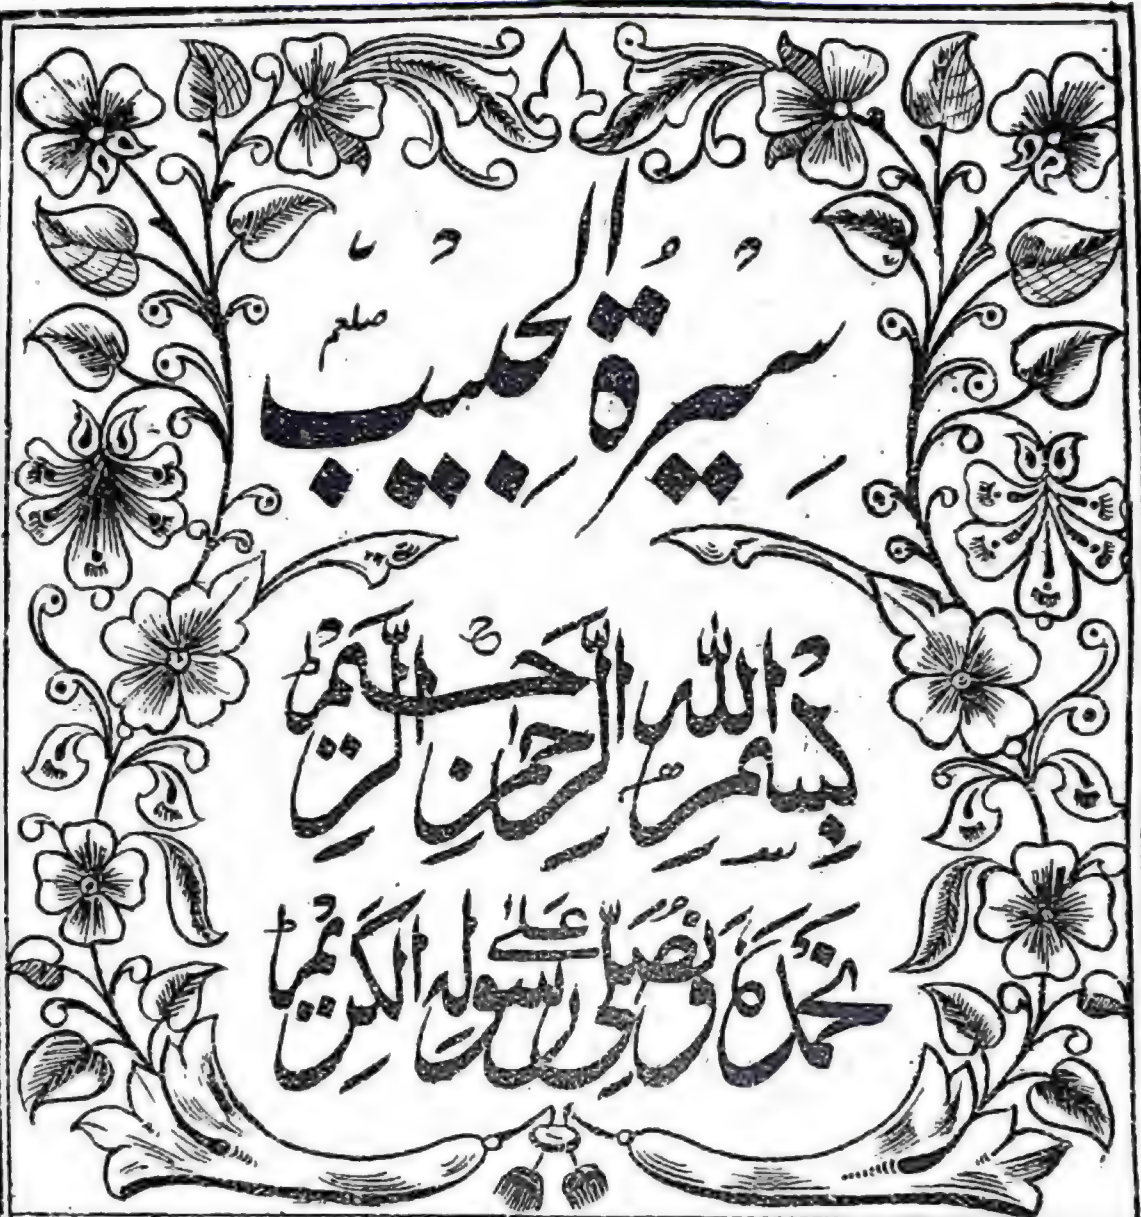 سِيْرَةُ الْحَبِيْبِ صلعم
بِسْمِ اللهِ الرَّحْمٰنِ الرَّحِيْمِ
نَحْمَدُهٗ وَنُصَلِّيْ عَلٰى رَسُوْلِهِ الْكَرِيْمِ